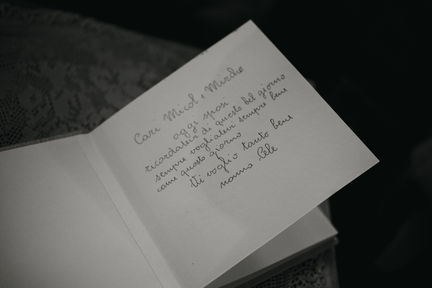 Cari Micol e Mirko
oggi sposi
ricordatevi di questo bel giorno
sempre vogliatevi sempre bene
come questo giorno
Vi voglio tanto bene
nonno Cele